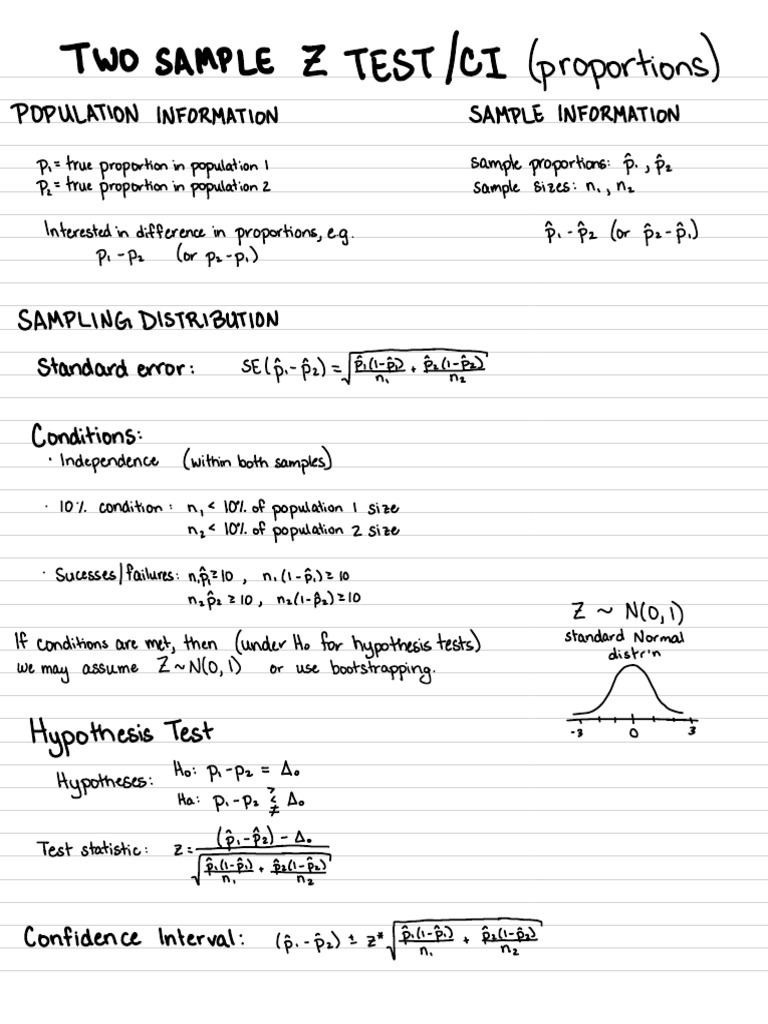 TWO SAMPLE Z TEST/CI (proportions)
POPULATION INFORMATION
p₁ = true proportion in population 1
p₂ = true proportion in population 2
Interested in difference in proportions, e.g.
p₁ - p₂ (or p₂ - p₁)
SAMPLE INFORMATION
sample proportions: p̂₁, p̂₂
sample sizes: n₁, n₂
p̂₁ - p̂₂ (or p̂₂ - p̂₁)
SAMPLING DISTRIBUTION
Standard error: SE(p̂₁ - p̂₂) = √(p̂₁(1-p̂₁)/n₁ + p̂₂(1-p̂₂)/n₂)
Conditions:
· Independence (within both samples)
· 10% condition: n₁ < 10% of population 1 size
n₂ < 10% of population 2 size
· Sucesses/failures: n₁p̂₁ ≥ 10, n₁(1-p̂₁) ≥ 10
n₂p̂₂ ≥ 10, n₂(1-p̂₂) ≥ 10
If conditions are met, then (under H₀ for hypothesis tests)
we may assume Z ~ N(0,1) or use bootstrapping.
Z ~ N(0,1)
standard Normal
distr'n
-3 0 3
Hypothesis Test
Hypotheses: H₀: p₁ - p₂ = Δ₀
Ha: p₁ - p₂ > < ≠ Δ₀
Test statistic: z = ((p̂₁ - p̂₂) - Δ₀)/√(p̂₁(1-p̂₁)/n₁ + p̂₂(1-p̂₂)/n₂)
Confidence Interval: (p̂₁ - p̂₂) ± z* √(p̂₁(1-p̂₁)/n₁ + p̂₂(1-p̂₂)/n₂)